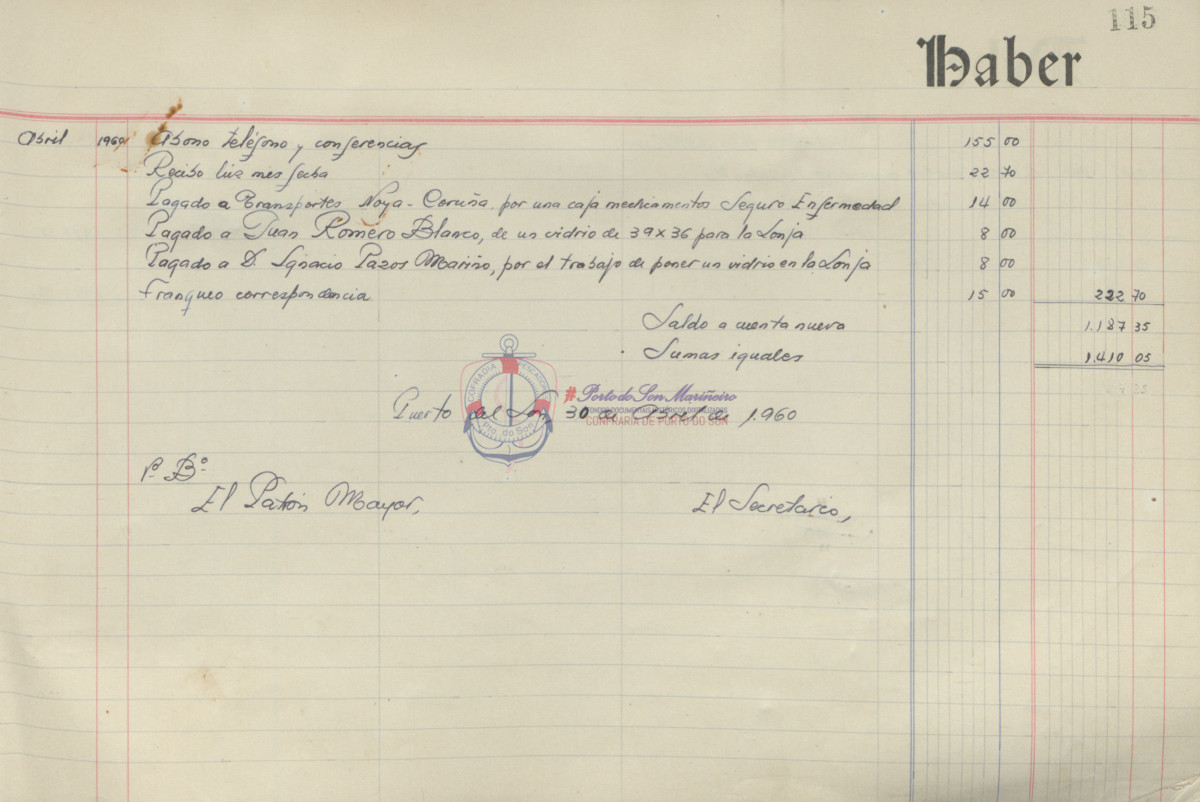 115
Haber
Abril 1960 Abono teléfono y conferencias 155 00
Recibo luz mes fecha 22 70
Pagado a Transportes Noya-Coruña, por una caja medicamentos Seguro Enfermedad 14 00
Pagado a Juan Romero Blanco, de un vidrio de 39x36 para la Lonja 8 00
Pagado a D. Ignacio Pazos Mariño, por el trabajo de poner un vidrio en la Lonja 8 00
Franqueo correspondencia 15 00 222 70
Saldo a cuenta nueva 1.187 35
Sumas iguales 1.410 05
COFRADIA PESCADORES
Pto. do Son
#Porto do Son Mariñeiro
CONFRARIA DE PORTO DO SON
Puerto del Son, 30 de Abril de 1.960
Vº Bº
El Patrón Mayor,
El Secretario,